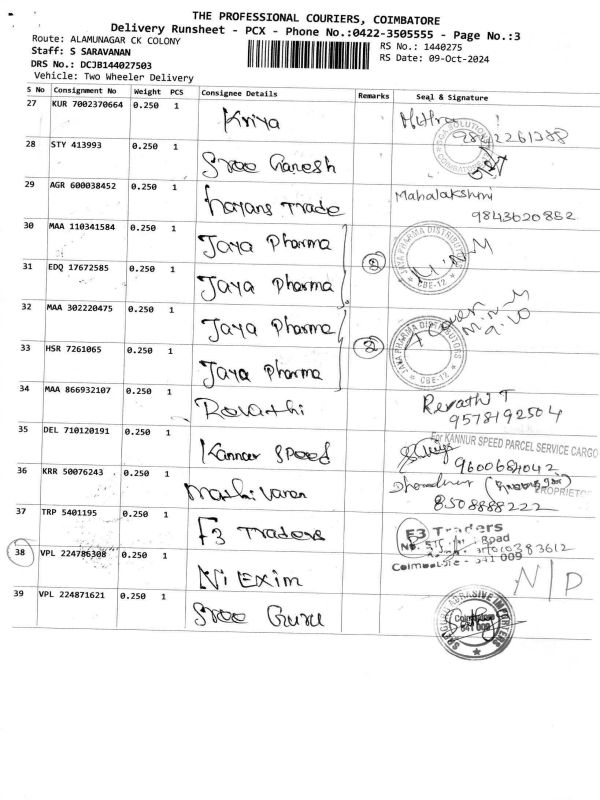 THE PROFESSIONAL COURIERS, COIMBATORE
Delivery Runsheet - PCX - Phone No.:0422-3505555 - Page No.:3
Route: ALAMUNAGAR CK COLONY
RS No.: 1440275
Staff: S SARAVANAN
RS Date: 09-Oct-2024
DRS No.: DCJB144027503
Vehicle: Two Wheeler Delivery
S No Consignment No Weight PCS Consignee Details Remarks Seal & Signature
27 KUR 7002370664 0.250 1 Kriya
28 STY 413993 0.250 1 Sree Ganesh
29 AGR 600038452 0.250 1 Trade Mahalakshmi
9843620852
30 MAA 110341584 0.250 1 Jaya Pharma
JAYA PHARMA DISTRIBUTORS
CBE-12
31 EDQ 17672585 0.250 1 Jaya Pharma
32 MAA 302220475 0.250 1 Jaya Pharma
33 HSR 7261065 0.250 1 Jaya Pharma 2
JAYA PHARMA DISTRIBUTORS
CBE-12
34 MAA 866932107 0.250 1 Revathi Revathi T
9578192504
35 DEL 710120191 0.250 1 Kannur Speed
For KANNUR SPEED PARCEL SERVICE CARGO
9600684042
PROPRIETOR
36 KRR 50076243 0.250 1 Mathivanan
8508888222
37 TRP 5401195 0.250 1 F3 Traders
F3 Traders
Road
Coimbatore - 641 009
38 VPL 224786308 0.250 1 Ni Exim N/D
39 VPL 224871621 0.250 1 Sree Guru
Coimbatore
641 009